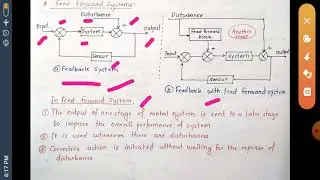 * Feed Forward Systems:
Disturbance
Input
System
output
Sensor
ⓐ Feedback System
Disturbance
Feed forward
block
Another
Input
System
output
Sensor
ⓑ Feedback with feed forward system
In feed forward system,
① The output of one stage of control system is sent to a later stage
to improve the overall performance of system
② It is used whenever there are disturbances
③ Corrective action is initiated without waiting for the response of
disturbance
4:17 PM